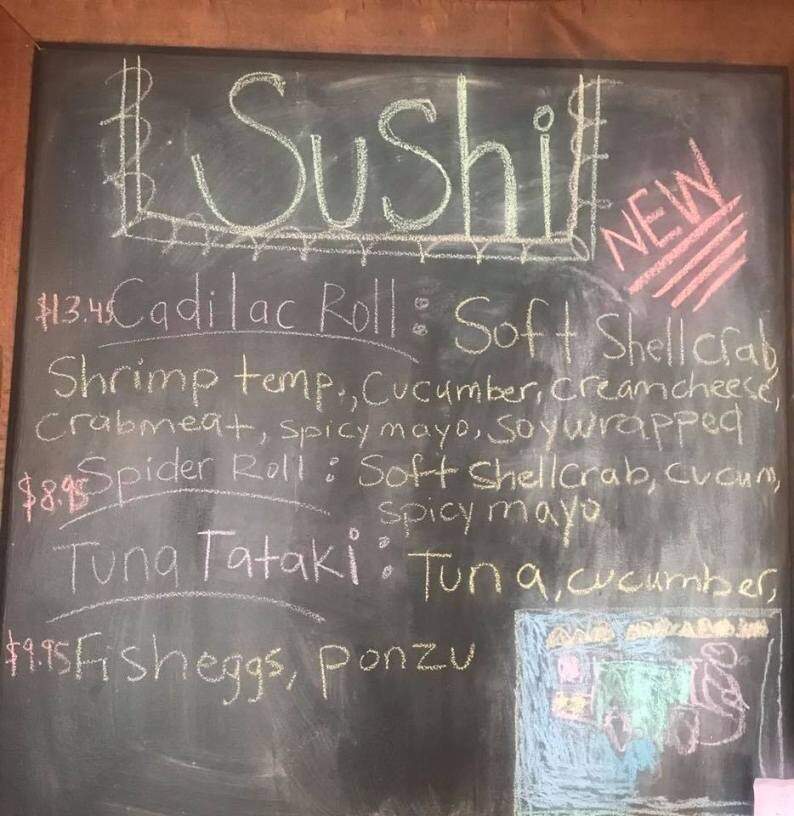 Sushi
NEW
$13.45 Cadilac Roll: Soft Shellcrab,
Shrimp temp., Cucumber, creamcheese,
Crabmeat, spicy mayo, Soywrapped
$8.95 Spider Roll: Soft Shellcrab, cucum,
spicy mayo
Tuna Tataki: Tuna, cucumber,
$9.95 Fisheggs, ponzu